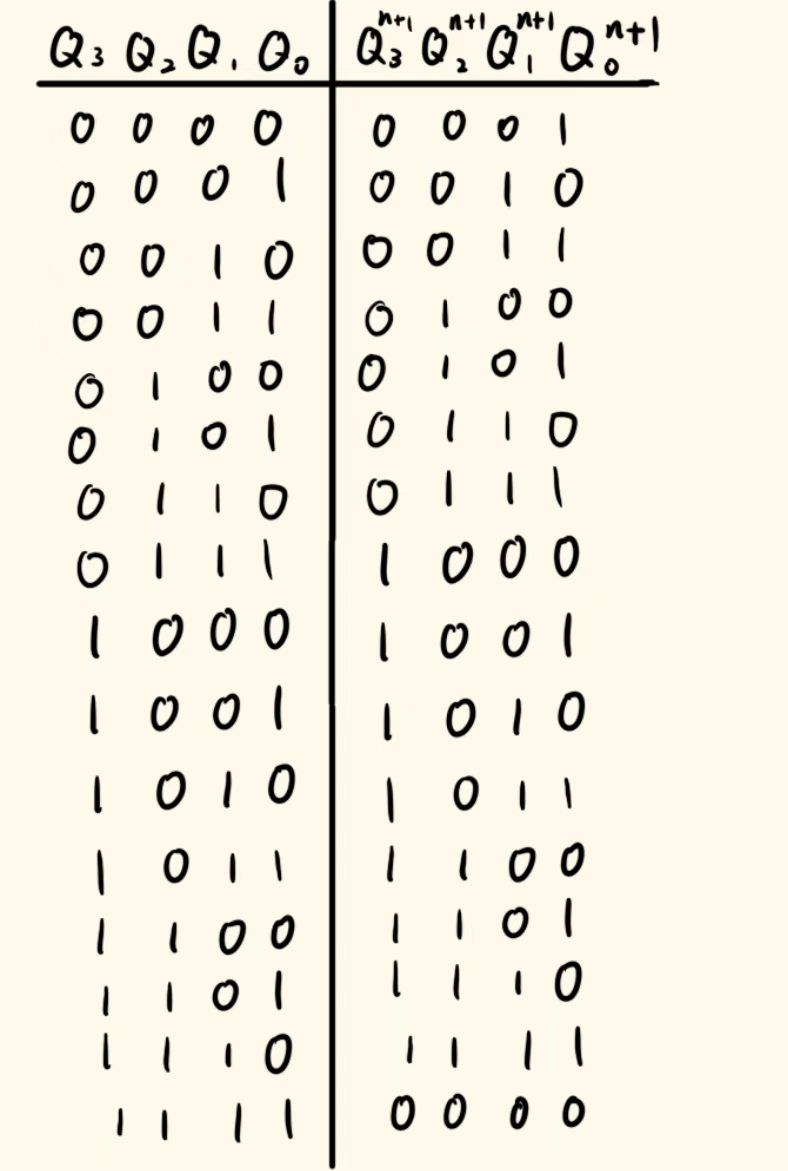 Q₃ Q₂ Q₁ Q₀ | Q₃ⁿ⁺¹ Q₂ⁿ⁺¹ Q₁ⁿ⁺¹ Q₀ⁿ⁺¹
0 0 0 0 | 0 0 0 1
0 0 0 1 | 0 0 1 0
0 0 1 0 | 0 0 1 1
0 0 1 1 | 0 1 0 0
0 1 0 0 | 0 1 0 1
0 1 0 1 | 0 1 1 0
0 1 1 0 | 0 1 1 1
0 1 1 1 | 1 0 0 0
1 0 0 0 | 1 0 0 1
1 0 0 1 | 1 0 1 0
1 0 1 0 | 1 0 1 1
1 0 1 1 | 1 1 0 0
1 1 0 0 | 1 1 0 1
1 1 0 1 | 1 1 1 0
1 1 1 0 | 1 1 1 1
1 1 1 1 | 0 0 0 0